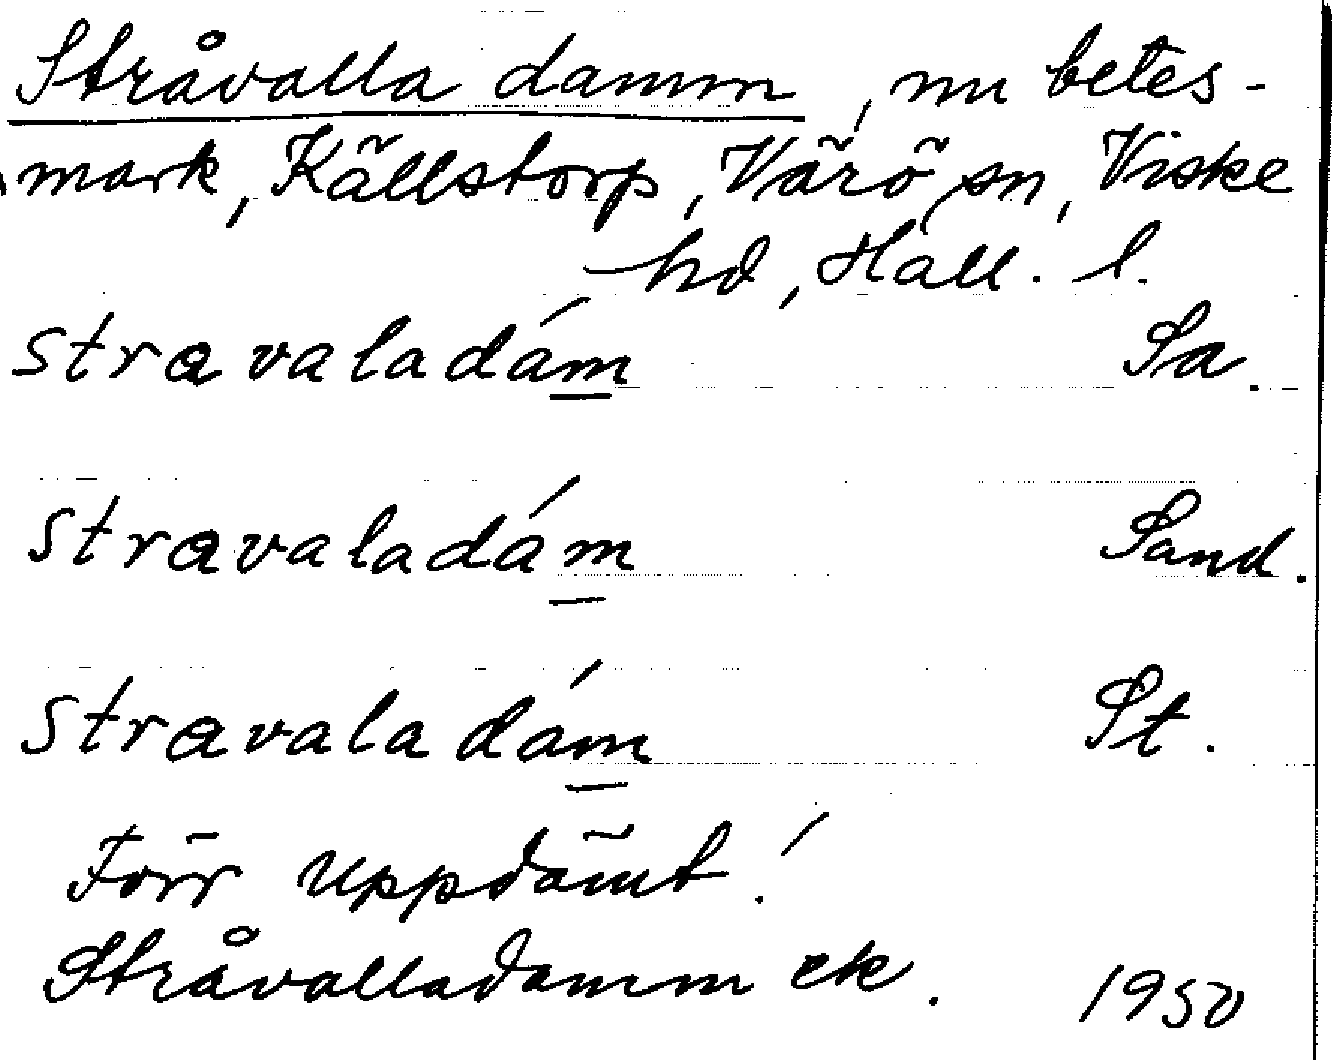 Stråvalla damm, nu betes-
mark, Källstorp, Värö sn, Viske
hd, Hall. l.
stravaladám Sa.
stravaladám Sand.
stravaladám St.
Förr uppdämt!
Stråvalladamm ek. 1950